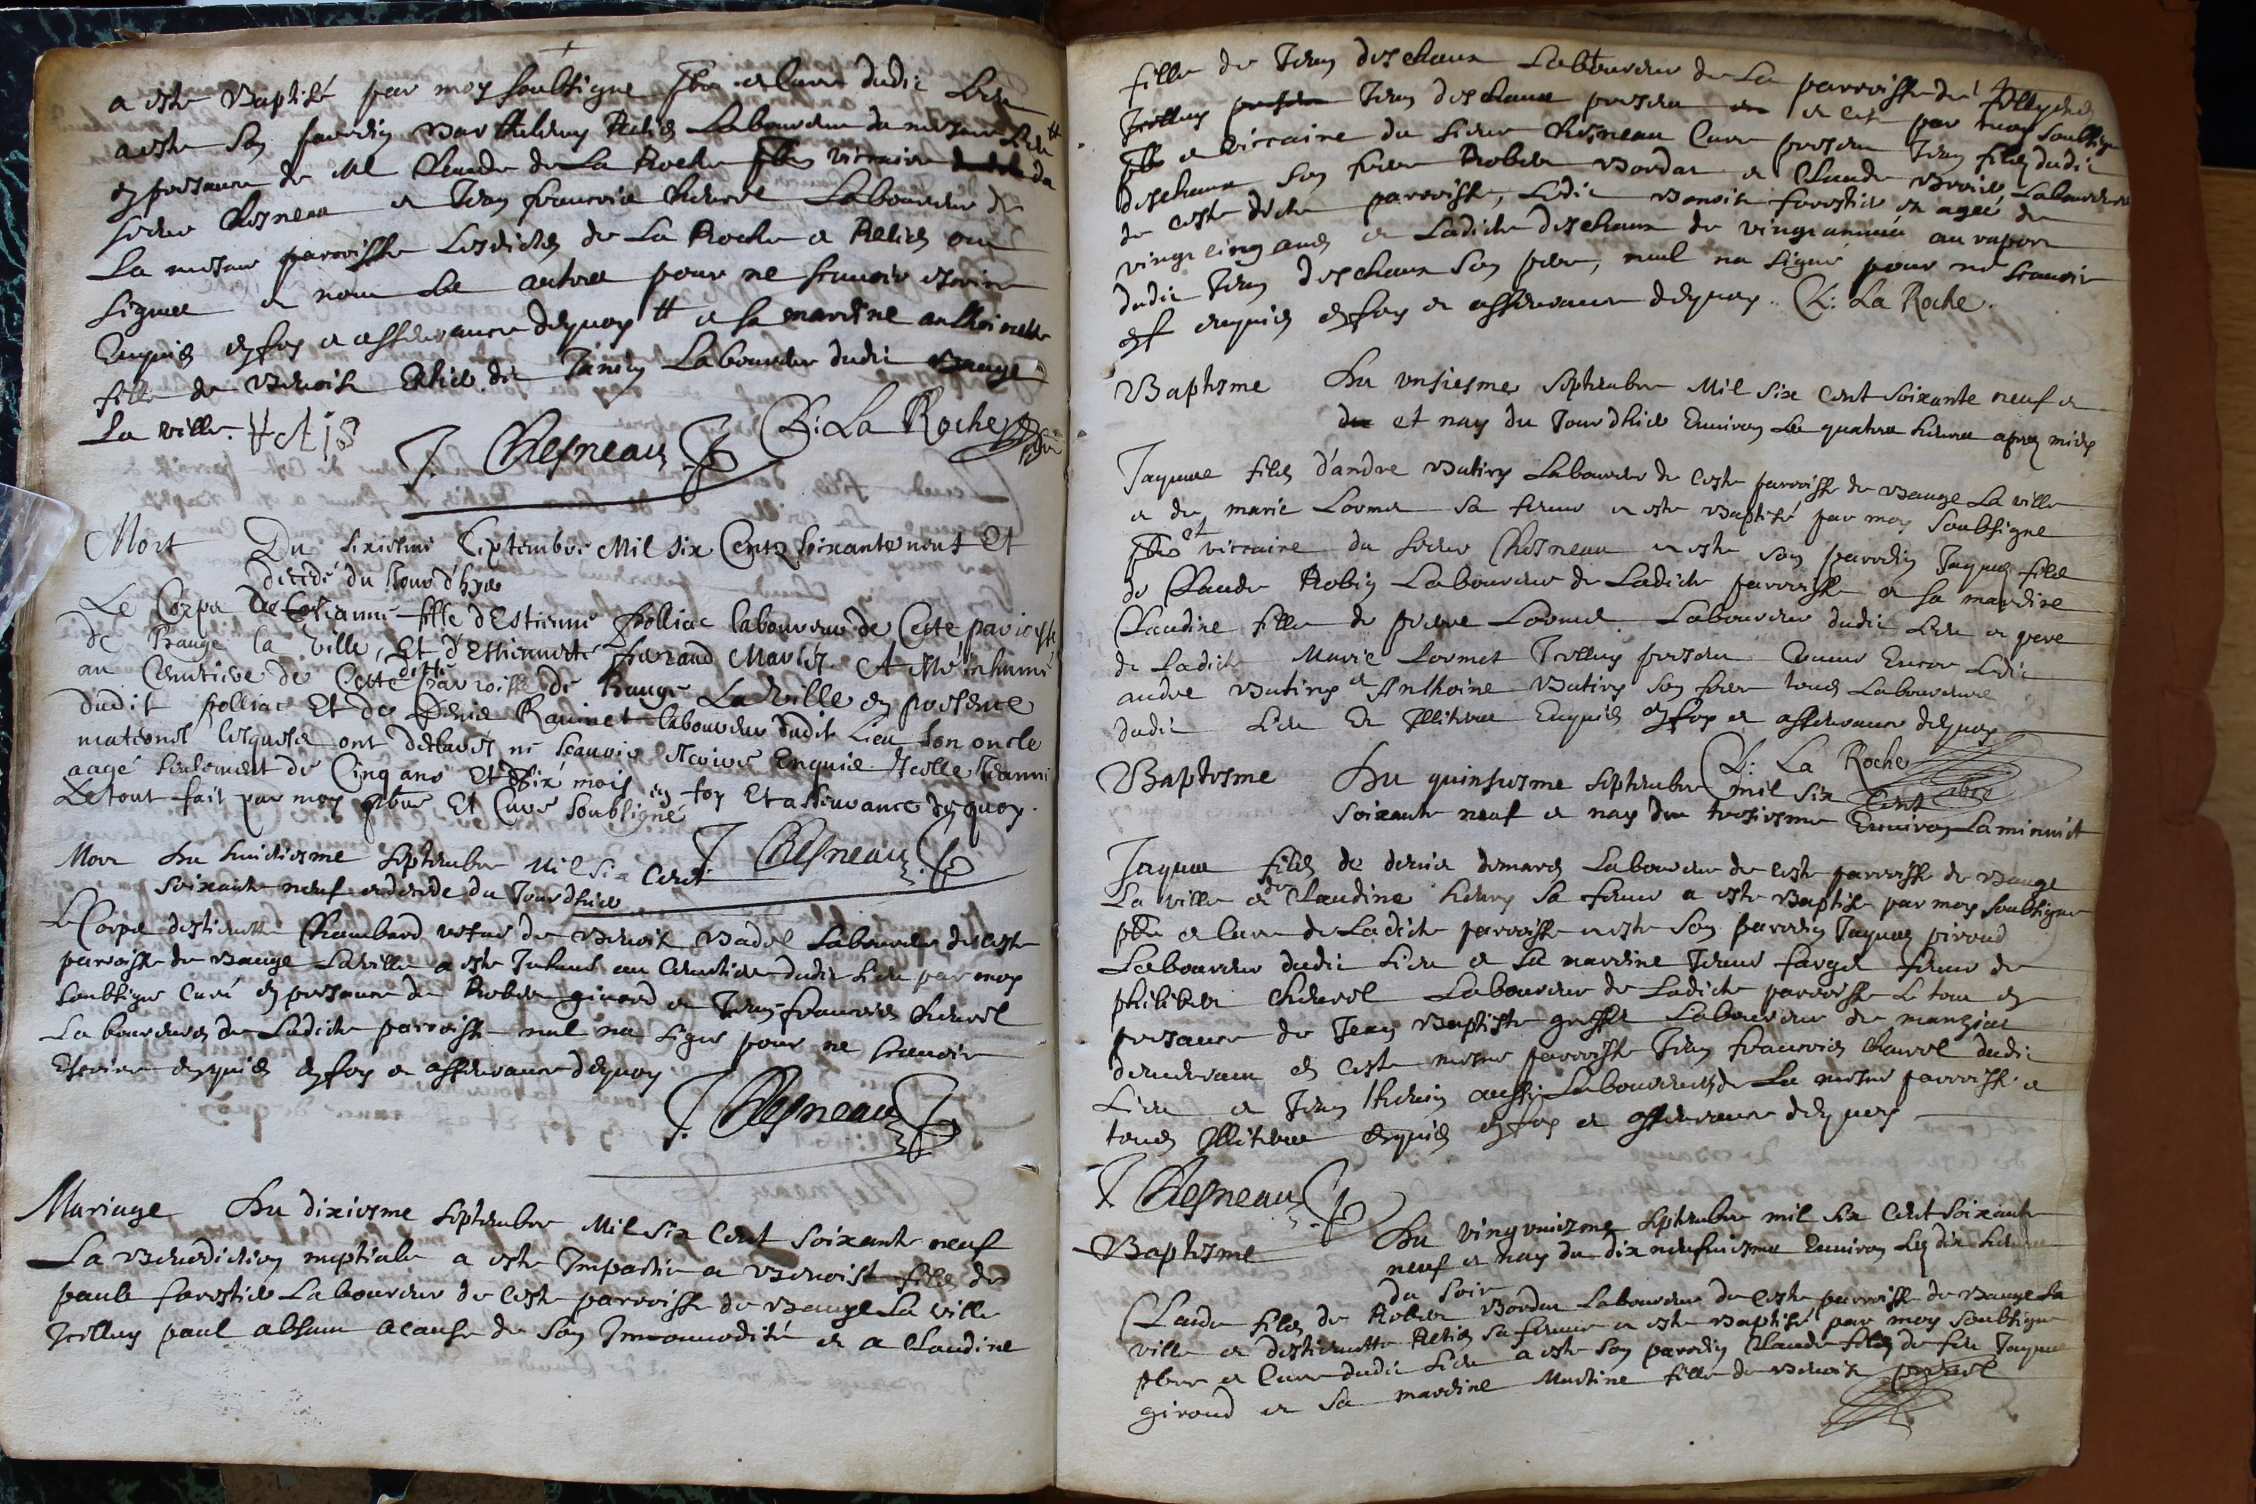 a este Baptisé par moy soubsigne pbre et Cure dudit Lieu
a este son parrin Barthelemy Retis Laboureur du mesme Lieu
en presance de Me Claude de La Roche pbre viccaire du
sieur Chesneau et Jean francois Chevrel Laboureur de
La mesme parroisse Lesdictes de La Roche et Retis ont
signes et non Les autres pour ne scavoir escrire
Enquis en foy et asseurance dequoy et sa marrine anthoinette
fille de Benoist dit Laboureur dudit Bauge
La ville.
J. Chesneau C: La Roche
Mort Du sixiesme Septembre Mil six Cents soixante neuf Et
decedé du Jour d'hyer
Le Corps de Estienne fille d'Estienne folliac laboureur de Cette paroisse
de Baugé la ville, Et d'Estiennette ferrand Mariés. A esté inhumé
au Cemetiere de Cette ditte Parroisse de Baugé La Ville en presence
dudit folliac Et de Denis Raninet laboureur dudit Lieu son oncle
maternel lesquels ont declarés ne scavoir escrire Enquis Icelle Jeanne
aagé seulement de Cinq ans Et Six mois en foy Et asseurance dequoy.
Le tout fait par moy pbre Et Curé Soubsigné
J. Chesneau
Mort Du huictiesme Septembre Mil Six Cent
soixante neuf et decede du Jourdhuy
Le Corps destiennette Chambard vefve de Benoist Badel Laboureur de ceste
parroisse de Bauge La ville a este Inhumé au Cemetiere dudit Lieu par moy
soubsigne Curé en presance de Robert girard et Jean francois Chevrel
Laboureurs de Ladicte parroisse nul na signe pour ne scavoir
Escrire enquis en foy et asseurance dequoy
J. Chesneau
Mariage Du dixiesme Septembre Mil six Cent soixante neuf
La Benediction nuptiale a este Impartie a Benoist fils de
paule forestier Laboureur de ceste parroisse de Bauge La ville
Icelluy paul absent a cause de son Incomodité et a Claudine
fille de Jean deschaux Laboureur de La parroisse de
Icelluy Jean deschaux present et ce par moy soubsigne
pbre et viccaire du sieur Chesneau Cure present Jean fils dudit
deschaux son frere Robert Bordat et Claude Laboureurs
de ceste dicte parroisse, Ledit Benoist forestier et ageé de
vingt cinq ans et Ladicte deschaux de vingt années au raport
dudit Jean deschaux son pere, nul na signé pour ne scavoir
enquis en foy et asseurance dequoy. C: La Roche.
Baptesme Du unsiesme Septembre Mil Six Cent Soixante neuf et
et nay du Jourdhuy Environ Les quatre heures apres midy
Jaques fils d'andre Butiny Laboureur de ceste parroisse de Bauge La ville
et de marie Lormet sa femme a este Baptisé par moy soubsigne
pbre et viccaire du sieur Chesneau a este son parrein Jaques fils
de Claude Robin Laboureur de Ladicte parroisse et sa marrine
Claudine fille de pierre Lormet Laboureur dudit Lieu et pere
de Ladicte Marie Lormet Icelluy present Comme Encor Ledit
andre Butiny et Anthoine Butiny son frere tous Laboureurs
dudit Lieu Et Illiteres Enquis en foy et asseurance dequoy
C: La Roche
Baptesme Du quinsiesme Septembre mil six Cent
soixante neuf et nay du tresiesme Environ La minuict
Jaques fils de denis demares Laboureur de ceste parroisse de Bauge
La ville et de Claudine henry sa femme a este Baptisé par moy soubsigne
pbre et Cure de Ladicte parroisse a este son parrein Jaques piroud
Laboureur dudit Lieu et sa marrine Jeanne farget femme de
philibert Chevrel Laboureur de Ladicte parroisse Le tout en
presance de Jean Baptiste Laboureur de manziat
demeurant en ceste mesme parroisse Jean francois Chavrel dudit
Lieu et Jean aussi Laboureurs de La mesme parroisse et
tous Illiteres enquis en foy et asseurance dequoy
J. Chesneau
Baptesme Du vingt uniesme Septembre mil six Cent soixante
neuf et nay du dix neufviesme Environ Les dix heures
du soir
Claude fils de Robert Bordat Laboureur de ceste parroisse de Bauge La
ville et destiennette Retis sa femme a este Baptisé par moy soubsigne
pbre et Cure dudit Lieu a este son parrein Claude fils de feu Jaques
giroud et sa marrine Martine fille de Benoist